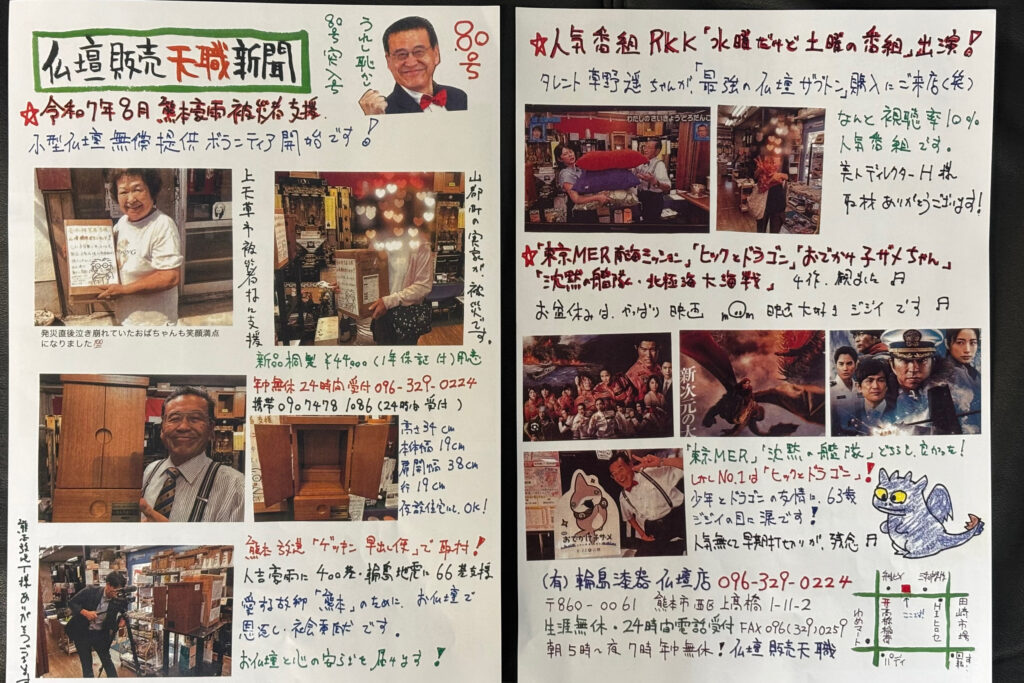 仏壇販売天職新聞
うれし恥かし
80号突入号
80号
☆令和7年8月 熊本豪雨被災者支援
小型仏壇無償提供ボランティア開始です!
上天草市被災者様に支援
山都町の実家が被災です。
発災直後泣き崩れていたおばちゃんも笑顔満点
になりました💯
新品桐製 ¥44,000 (1年保証付)用意
年中無休24時間受付 096-329-0224
携帯 090 7478 1086 (24時間受付)
高さ34cm
本体幅19cm
扉開幅38cm
行19cm
仮設住宅にもOK!
熊本放送「ゲッキン早出し便」で取材!
人吉豪雨に400基・輪島地震に66基支援
愛する故郷「熊本」のために、お仏壇で
恩返し・社会奉献です。
お仏壇と心の安らぎを届けます!
☆人気番組RKK「水曜だけど土曜の番組」出演!
タレント草野遥ちゃんが「最強の仏壇ザブトン」購入にご来店(笑)
わたしのさいきょうどろだんご
なんと視聴率10%
人気番組です。
美人ディレクターH様
取材ありがとうございます!
☆「東京MER 南海ミッション」「ヒックとドラゴン」「おでかけ子ザメちゃん」
「沈黙の艦隊・北極海大海戦」 4作、観ました♬
お盆休みは、やっぱり映画 映画大好きジジイです♬
新次元の
「東京MER」「沈黙の艦隊」どちらも良かった!
しかしNo.1は「ヒックとドラゴン」!
少年とドラゴンの友情に、63歳
ジジイの目に涙です!
人気無くて早期打切りが、残念♬
おでかけ子ザメ
(有)輪島漆器仏壇店 096-329-0224
〒860-0061 熊本市西区上高橋1-11-2
生涯無休・24時間電話受付 FAX 096(329)0259
朝5時〜夜7時 年中無休!仏壇販売天職
ここです!
高橋稲荷
田崎市場